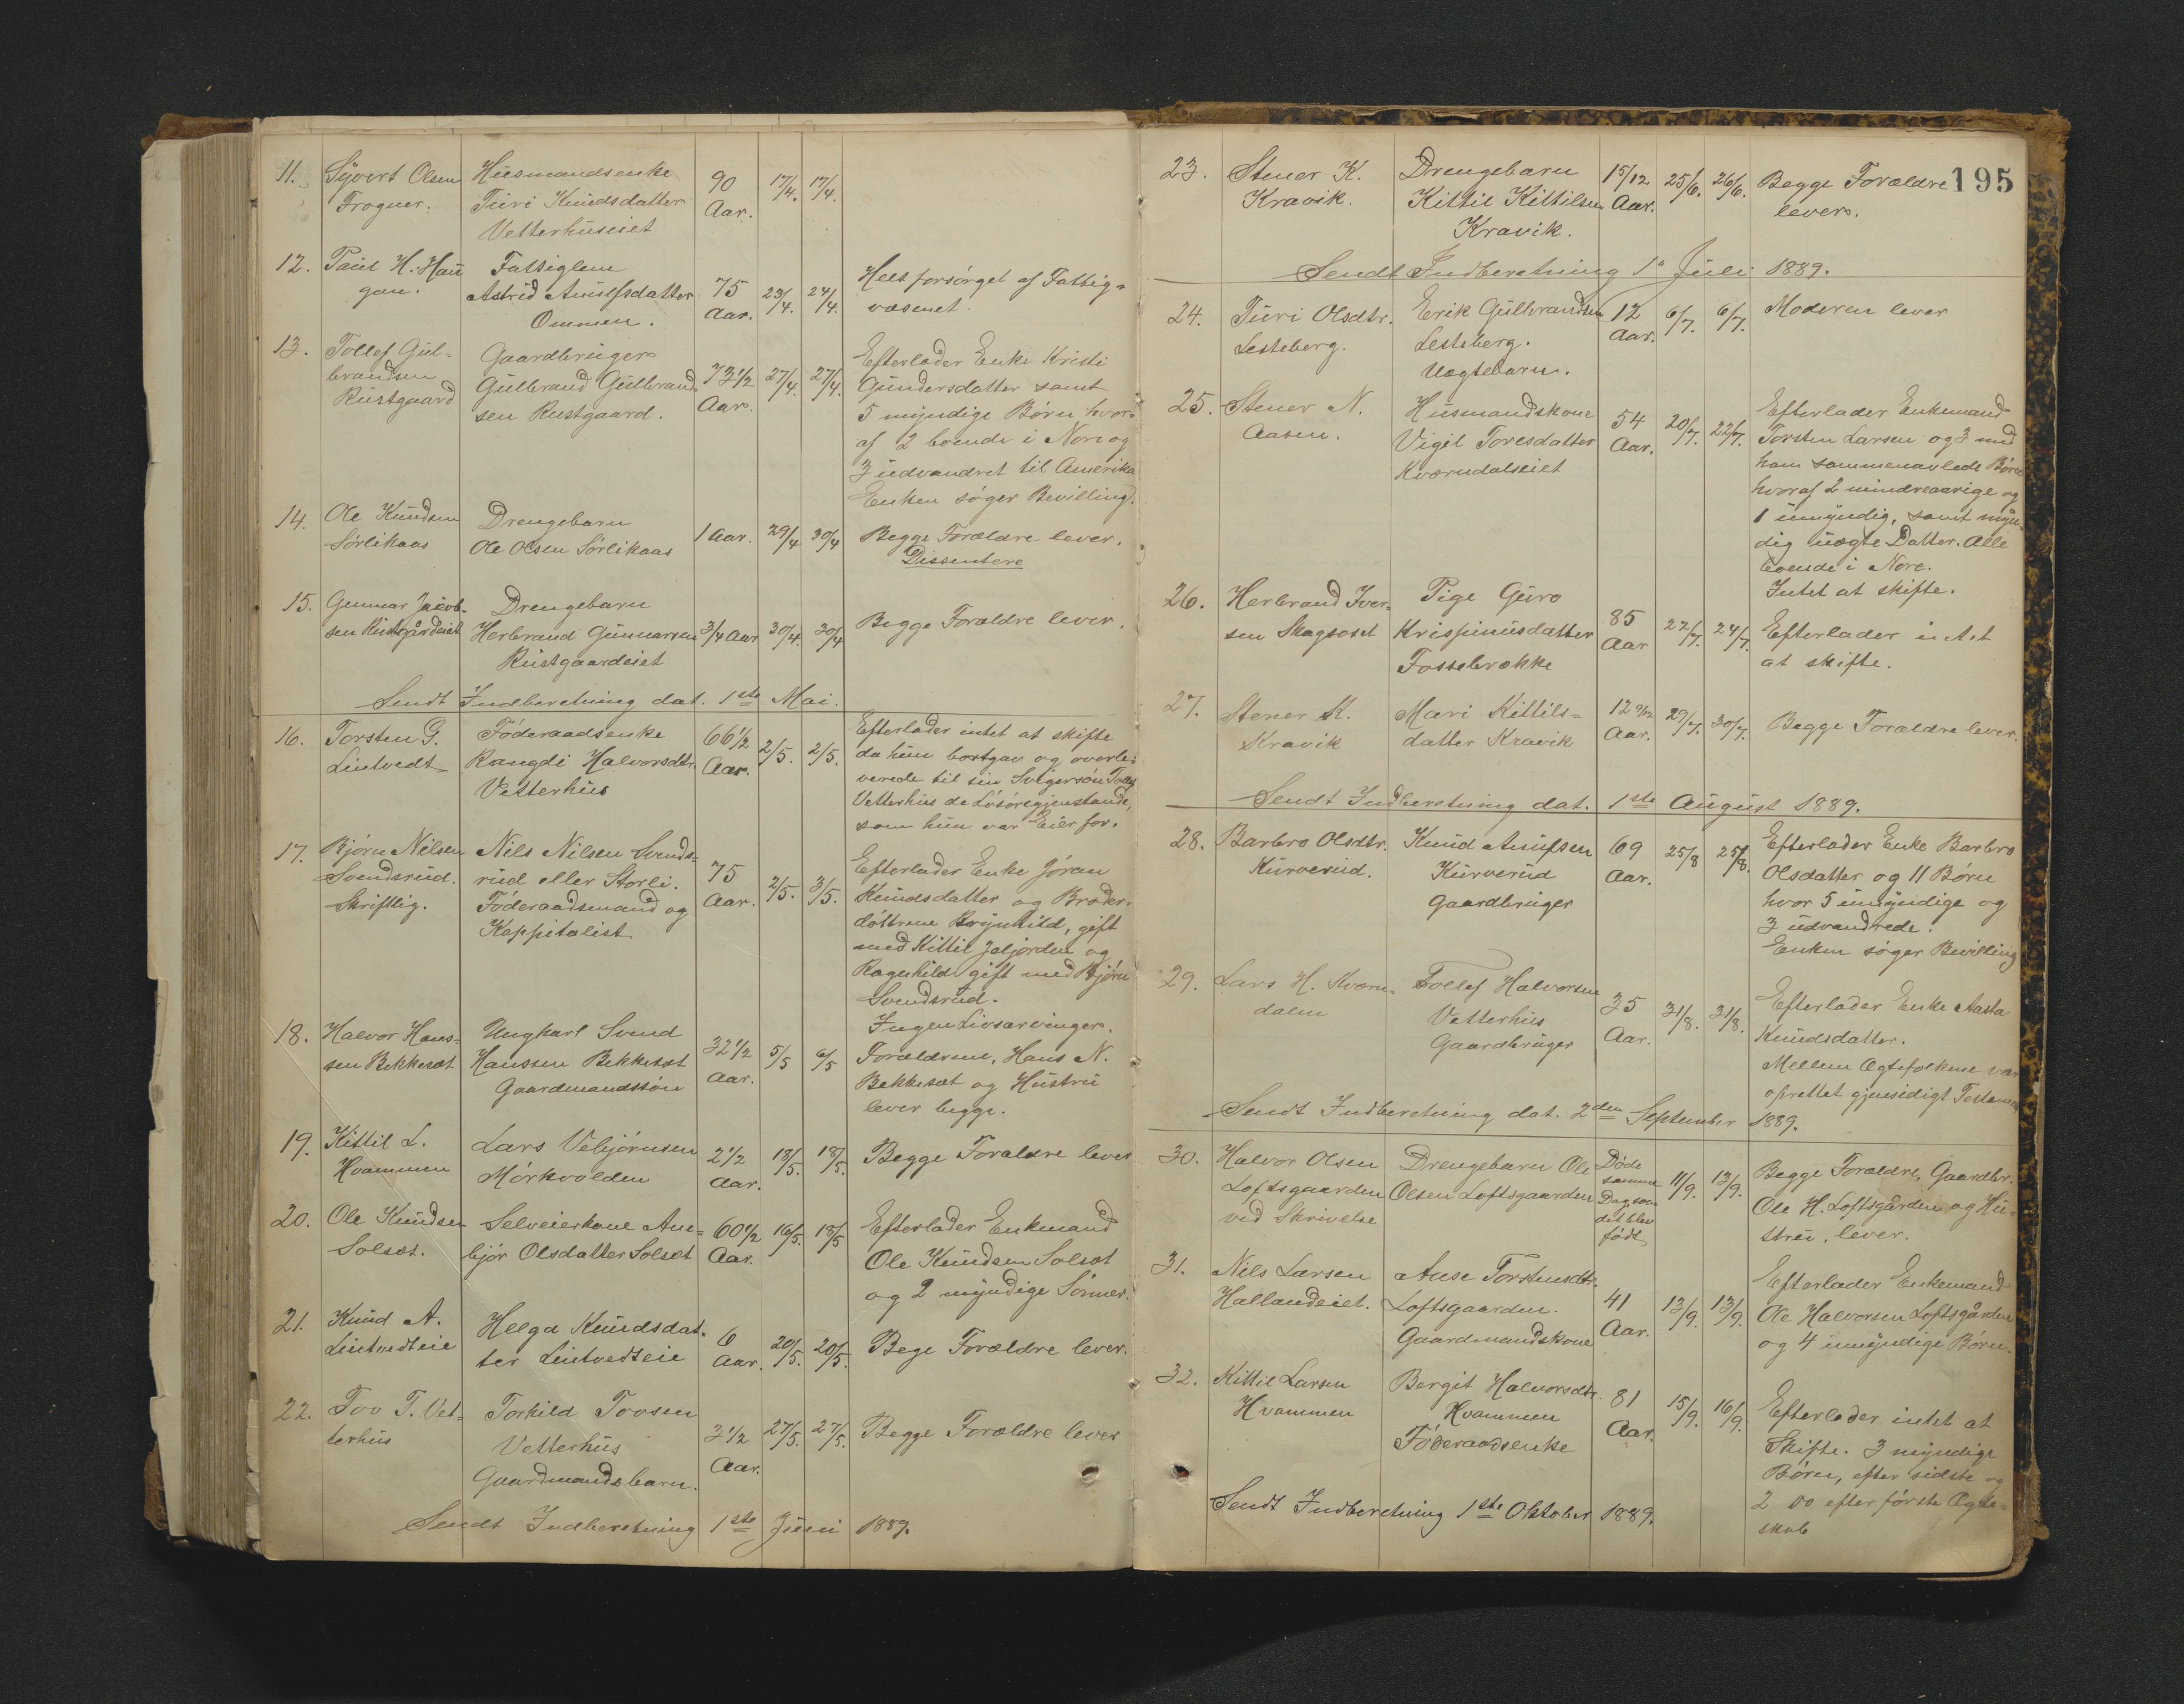 11. Syvert Olsen Husmandsenke 90 17/4. 17/4.
Frogner. Turi Knudsdatter Aar.
Vetterhuseiet
12. Paul H. Hau Fattiglem Helt forsörget af Fattig-
gan. Astrid Anulfsdatter 75 23/4. 24/4. væsenet.
Ommen. Aar.
13. Tollef Gul- Gaardbruger Efterlader Enke Kristi
brandsen Gulbrand Gulbrand 73 1/2 27/4. 27/4. Gundersdatter samt
Rustgaard sen Rustgaard. Aar. 5 myndige Börn hvor-
af 2 boende i Nore og
3 udvandret til Amerika
Enken söger Bevilling.
14. Ole Knudsen Drengebarn 1 Aar. 29/4 30/4 Begge Forældre lever.
Sørlikaas Ole Olsen Sörlikaas Dissentere
15. Gunnar Jacob- Drengebarn Begge Forældre lever.
sen Rustgårdeiet Herbrand Gunnarsen 3/4 Aar 30/4. 30/4
Rustgaardeiet
Sendt Indberetning dat. 1ste Mai.
16. Torsten G. Föderaadsenke 66 1/2 2/5. 2/5. Efterlader intet at skifte
Lintvedt Rangdi Halvorsdtr. Aar. da hun bortgav og overle-
Vetterhus verede til sin Svigersön Tollef
Vetterhus de Lösöregjenstande,
som hun var Eier for.
17. Björn Nilsen Nils Nilsen Svends- 75 2/5. 3/5. Efterlader Enke Jöran
Svendsrud. rud eller Storli. Aar. Knudsdatter og Broder-
Skriftlig. Föderaadsmand og döttrene Brynhild, gift
Kappitalist med Kittil Jaljorden og
Ragnhild gift med Björn
Svendsrud.
Ingen Livsarvinger.
18. Halvor Hans- Ungkarl Svend 32 1/2 5/5 6/5 Forældrene, Hans N.
sen Bekkesæt Hanssen Bekkesæt Aar. Bekkesæt og Hustru
Gaardmandssön lever begge.
19. Kittil L. Lars Vebjörnsen 2 1/2 18/5. 18/5. Begge Forældre lever
Hvammen Mörkvolden Aar.
20. Ole Knudsen Selveierkone An- 60 1/2 16/5. 18/5 Efterlader Enkmand
Solsæt. björ Olsdatter Solsæt Aar. Ole Knudsen Solsæt
og 2 myndige Sönner.
21. Knud A. Helga Knudsdat- 6 20/5. 20/5. Bege Forældre lever.
Lintvedteie ter Lintvedteie Aar.
22. Tov T. Vet- Torkild Tovsen 3 1/2 27/5. 27/5. Begge Forældre lever
terhus Vetterhus Aar.
Gaardmandsbarn.
Sendt Indberetning 1ste Juni 1889.
195
23. Stener K. Drengebarn 15/12 25/6. 26/6. Begge Forældre
Kravik. Kittil Kittilsen Aar. lever.
Kravik.
Sendt Indberetning 1ª Juli 1889.
24. Turi Olsdtr. Erik Gulbrandsen 12 6/7. 6/7. Moderen lever
Lesteberg. Lesteberg. Aar.
Uægtebarn.
25. Stener N. Husmandskone 54 20/7. 22/7. Efterlader Enkemand
Aasen. Vigil Toresdatter Aar. Torsten Larsen og 3 med
Kværndalseiet ham sammenavlede Börn
hvoraf 2 mindreaarige og
1 umyndig, samt myn-
dig uægte Datter. Alle
boende i Nore.
Intet at skifte.
26. Herbrand Iver- Pige Guro 85 22/7. 24/7. Efterlader intet
sen Skagsoset Krispinusdatter Aar at skifte.
Fossebrække
27. Stener K. Mari Kittils- 12 9/12 29/7. 30/7. Begge Forældre lever.
Kravik datter Kravik Aar.
Sendt Indberetning dat. 1ste August 1889.
28. Barbro Olsdtr. Knud Anufsen 69 25/8 25/8. Efterlader Enke Barbro
Kurverud. Kurverud Aar. Olsdatter og 11 Börn
Gaardbruger hvor 5 umyndige og
3 udvandrede.
Enken söger Bevilling
29. Lars H. Kværn- Tollef Halvorsen 35 31/8. 31/8. Efterlader Enke Aasta
dalen Vetterhus Aar. Knudsdatter.
Gaardbruger Mellem Ægtefolkene var
oprettet gjensidigt Testament
Sendt Indberetning dat. 2den September 1889.
30. Halvor Olsen Drengebarn Ole Døde 11/9. 13/9. Begge Forældre, Gaardbr.
Loftsgaarden Olsen Loftsgaarden samme Ole H. Loftsgården og Hu-
ved Skrivelse Dag som strue, lever.
det blev
født
31. Nils Larsen Anse Torstensdtr. 41 13/9. 13/9. Efterlader Enkemand
Hallandeiet. Loftsgaarden. Aar. Ole Halvorsen Loftsgården
Gaardmandskone og 4 umyndige Börn.
32. Kittil Larsen Bergit Halvorsdtr. 81 15/9. 16/9. Efterlader intet at
Hvammen Hvammen Aar. Skifte. 3 myndige
Föderaadsenke Börn, efter sidste og
2 do efter første Ægte-
skab
Sendt Indberetning 1ste Oktober 1889.